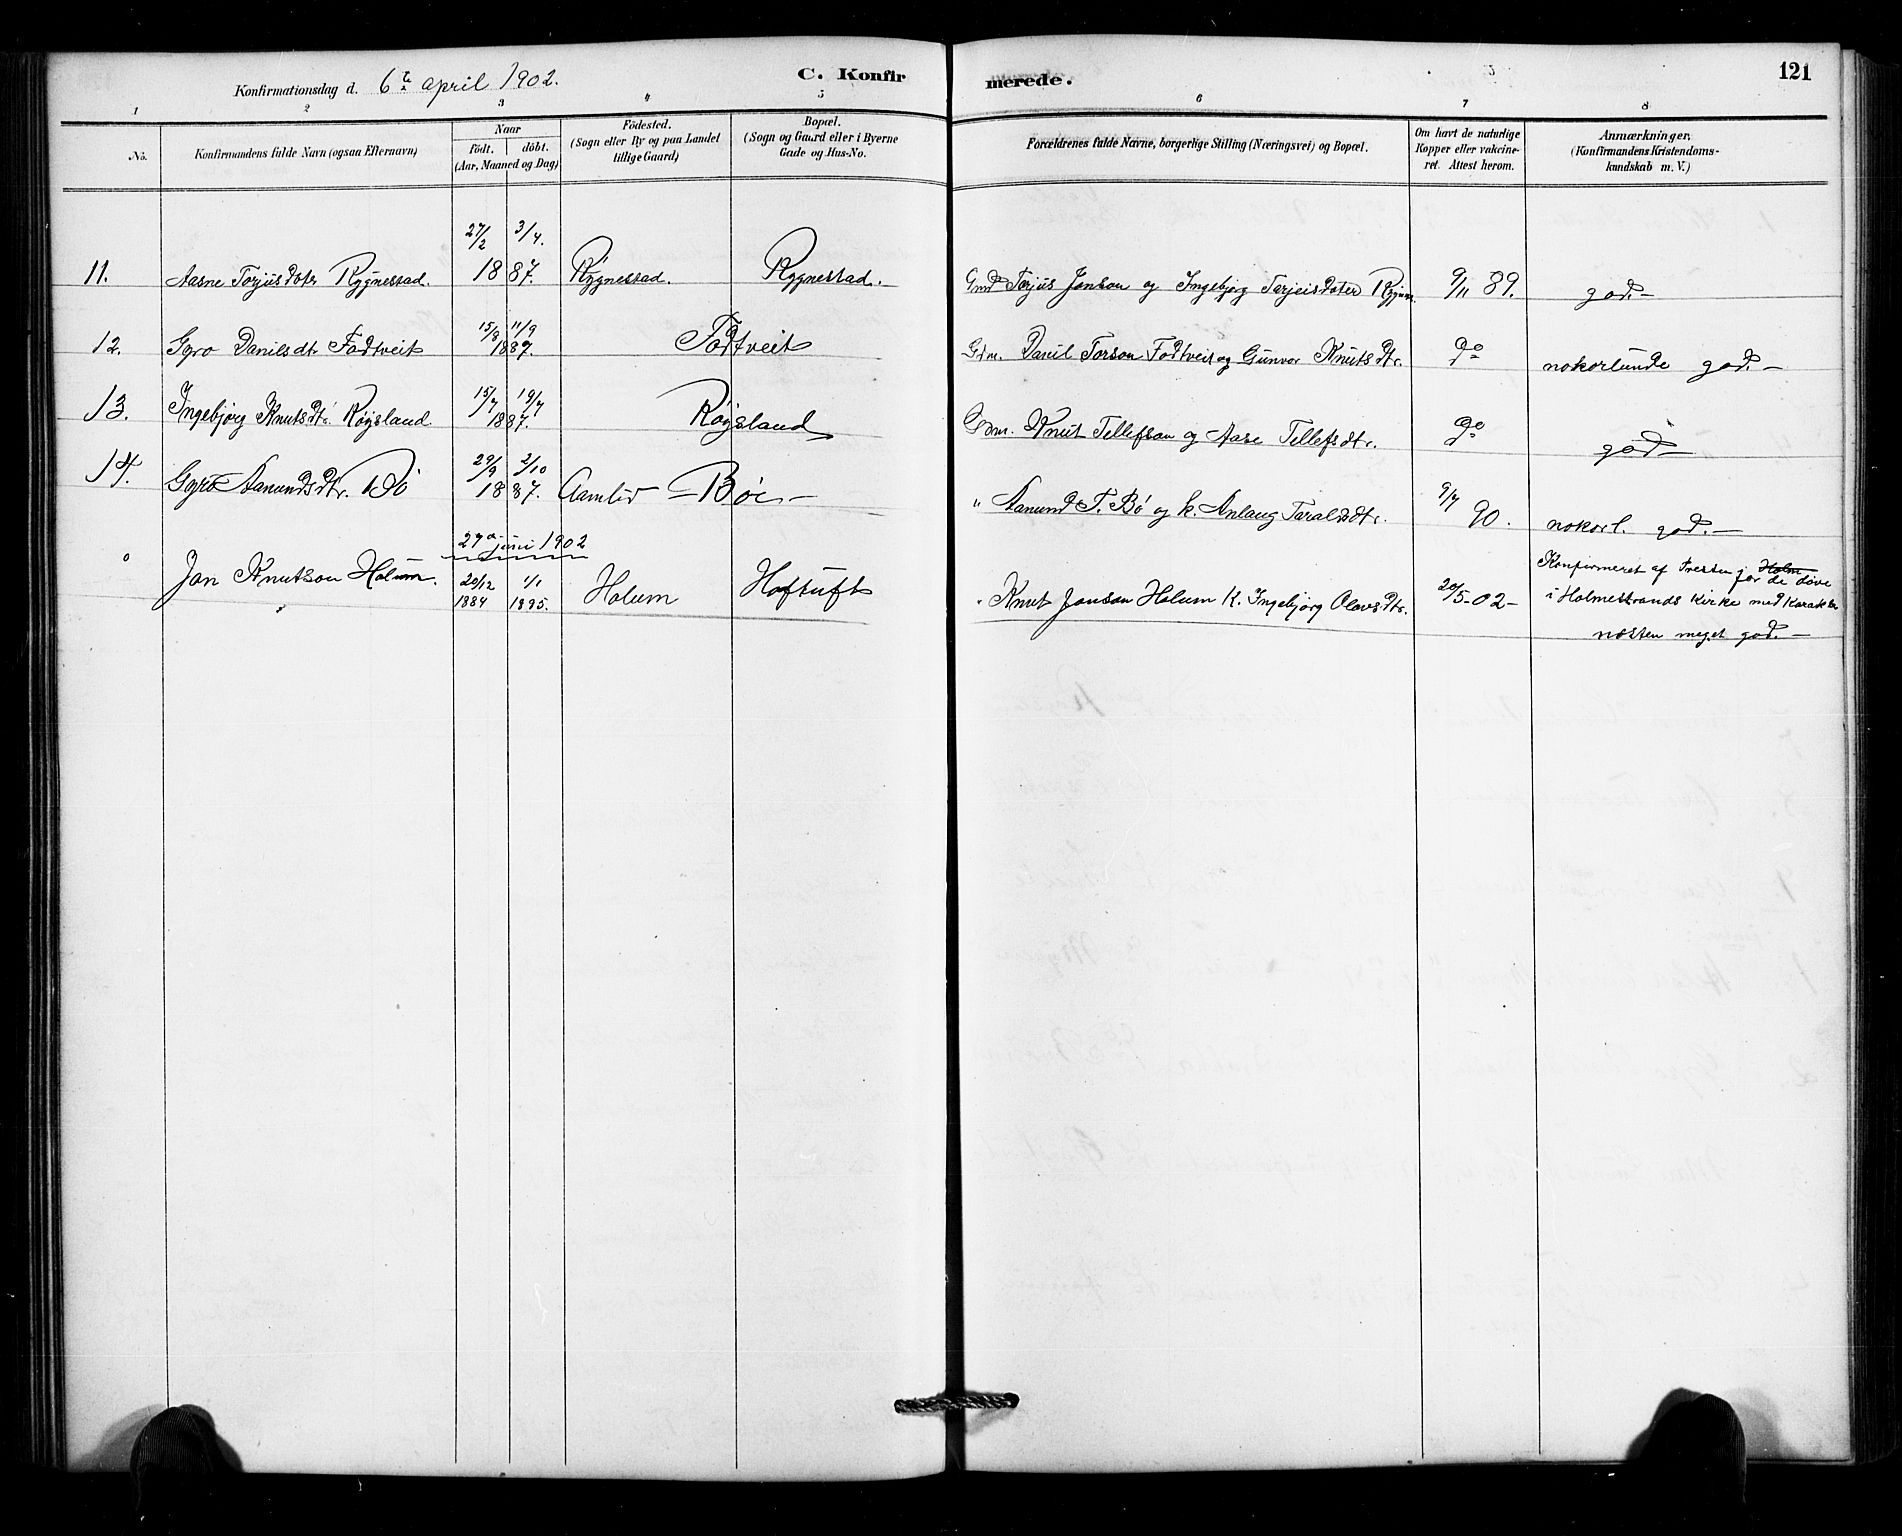 Konfirmationsdag d. 6te april 1902.
C. Konfirmerede.
121
1 2 3 4 5 6 7 8
No.
Konfirmandens fulde Navn (ogsaa Efternavn)
Naar
Födt. döbt.
(Aar, Maaned og Dag)
Födested.
(Sogn eller By og paa Landet
tillige Gaard)
Bopæl.
(Sogn og Gaard eller i Byerne
Gade og Hus-No.
Forældrenes fulde Navne, borgerlige Stilling (Næringsvei) og Bopæl.
Om havt de naturlige
Kopper eller vakcine-
ret. Attest herom.
Anmærkninger,
(Konfirmandens Kristendoms-
kundskab m. V.)
27/2 3/4.
11. Aasne Torjusdotr Rygnestad. 1887. Rygnestad. Rygnestad. Gmd Torjus Jonson og Ingebjørg Tarjeisdoter Rygnes. 9/11 89. god.
15/8 11/9
12. Gyro Danilsdtr Fodtveit 1887. Fodtveit Gdm. Danil Torson Fodtveit og Gunvor Knutsdtr. do nokorlunde god.
15/7 19/7
13. Ingebjørg Knutsdtr. Røysland 1887. Røysland Gdm. Knut Tellefson og Aase Tellefsdtr. do god
29/9 2/10
14. Gyro Aanundsdtr. Bö 1887. Aamlid Bö " Aanund T. Bø og k. Anlaug Taraldsdtr. 9/7 90. nokorl. god.
27de juni 1902
o Jon Knutson Holum. 20/12 1884 1/1 1895. Holum Hoftuft " Knut Jonson Holum K. Ingebjørg Olavsdtr. 20/5-02-
Konfirmeret af Presten for de døve
i Holmestrands Kirke med Karakter
næsten meget god.